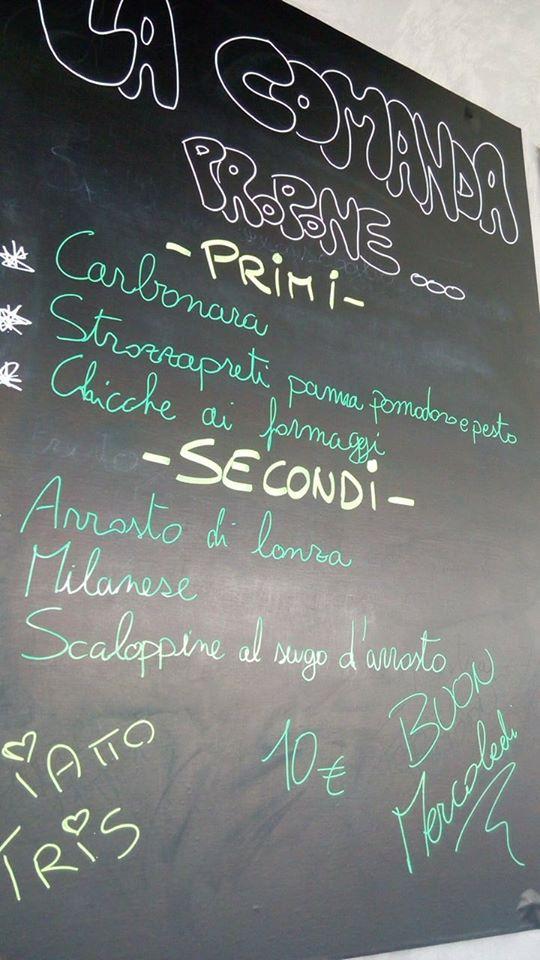 LA COMANDA
PROPONE...
- PRIMI -
* Carbonara
* Strozzapreti panna pomodoro e pesto
* Chicche ai formaggi
- SECONDI -
- Arrosto di lonza
Milanese
Scaloppine al sugo d'arrosto
IATTO
TRIS
10€
BUON
Mercoledì